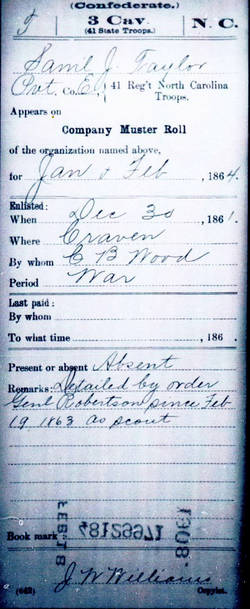 (Confederate.)
T 3 Cav. N. C.
(41 State Troops.)
Saml J. Taylor
Pvt., Co. E, 41 Reg't North Carolina Troops.
Appears on
Company Muster Roll
of the organization named above,
for Jan & Feb, 1864.
Enlisted:
When Dec 30, 1861.
Where Craven
By whom E B Wood
Period War
Last paid:
By whom
To what time, 186 .
Present or absent Absent
Remarks: Detailed by order
Genl Robertson since Feb
19 1863 as scout
Book mark:
(642) J W Williams Copyist.